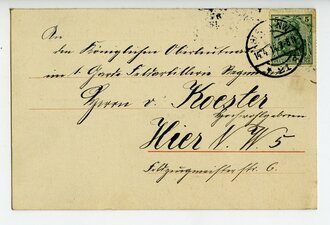 An
den Königlichen Oberleutnant
im 1. Garde Feldartillerie Regiment
Herrn v. Koester
Hochwohlgeboren
Hier N. W 5
Feldzeugmeisterstr. 6.
5